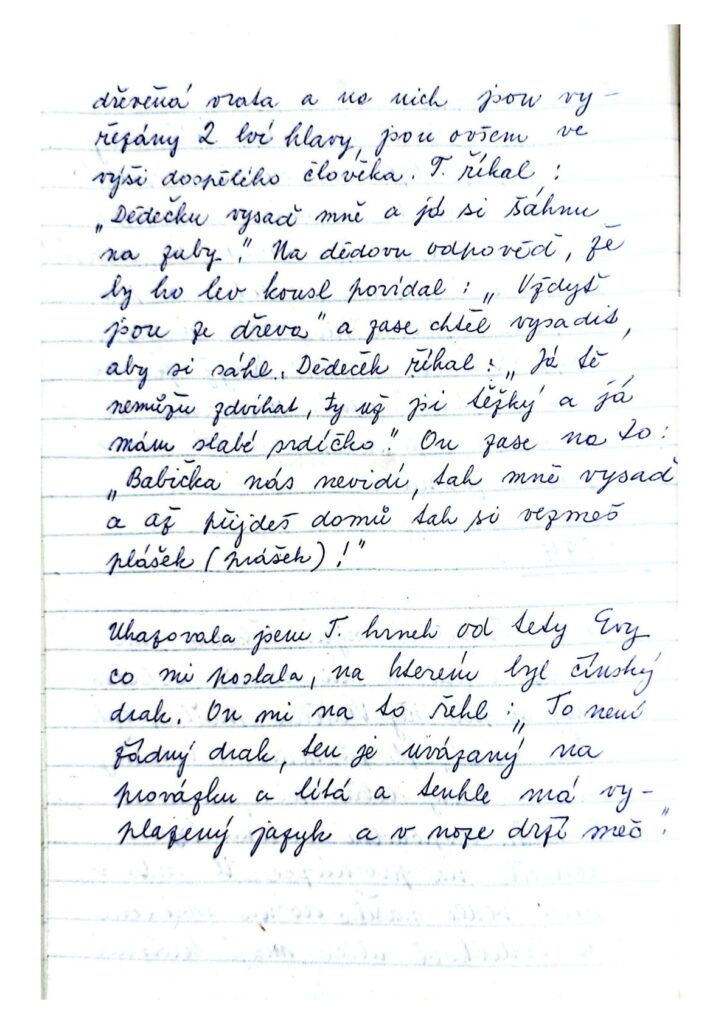 dřevěná vrata a na nich jsou vy-
řezány 2 lví hlavy, jsou ovšem ve
výši dospělého člověka. T. říkal :
„Dědečku vysaď mně a já si šáhnu
na zuby." Na dědovu odpověď, že
by ho lev kousl povídal : „ Vždyť
jsou ze dřeva" a zase chtěl vysadit,
aby si sáhl. Dědeček říkal : „ Já tě
nemůžu zdvihat, ty už jsi těžký a já
mám slabé srdíčko." On zase na to :
„Babička nás nevidí, tak mně vysaď
a až přijdeš domů tak si vezmeš
plášek (prášek) !"
Ukazovala jsem T. hrnek od tety Evy
co mi poslala, na kterém byl čínský
drak. On mi na to řekl : „ To není
žádný drak, ten je uvázaný na
provázku a lítá a tenhle má vy-
plazený jazyk a v noze drží meč."